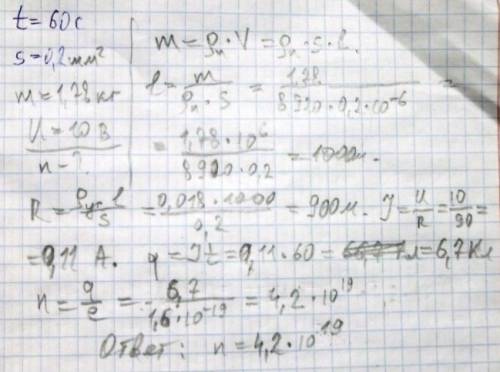 t=60c
s=0,2мм²
m=1,78кг
U=10 В
n-?
m=ρₙ·V=ρₙ·s·l.
l = m/(ρₙ·s) = 1,78/(8920·0,2·10⁻⁶) =
= 1,78·10⁶/(8920·0,2) = 1000м.
R = ρуд·l/s = 0,018·1000/0,2 = 90Ом. J=U/R=10/90=
=0,11 A. q=Jt=0,11·60= =6,7Кл
n = q/e = 6,7/(1,6·10⁻¹⁹) = 4,2·10¹⁹
Ответ: n=4,2·10¹⁹